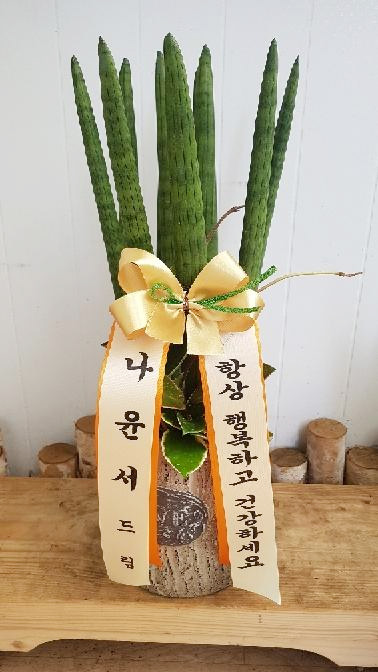 나윤서 드림
항상 행복하고 건강하세요